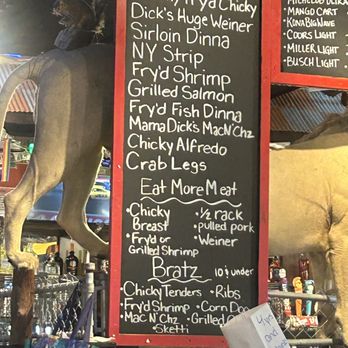 Fry'd Chicky
Dick's Huge Weiner
Sirloin Dinna
NY Strip
Fry'd Shrimp
Grilled Salmon
Fry'd Fish Dinna
Mama Dick's Mac N' Chz
Chicky Alfredo
Crab Legs
Eat More Meat
• Chicky Breast
• Fry'd or Grilled Shrimp
• ½ rack
• pulled pork
• Weiner
Bratz 10 & under
• Chicky Tenders • Ribs
• Fry'd Shrimp • Corn Dog
• Mac N' Chz • Grilled
• Sketti
MANGO CART
KONA BIG WAVE
COORS LIGHT
MILLER LIGHT
BUSCH LIGHT
and